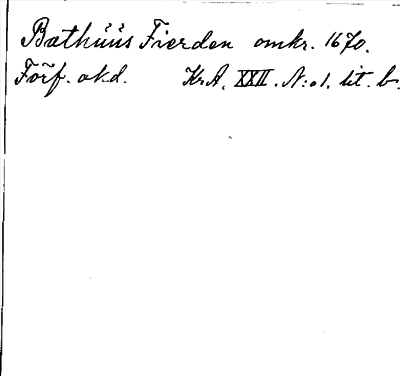 Bathüüs Fierden omkr. 1670.
Förf. okd. Kr.A. XXII. N:o1. lit. b.